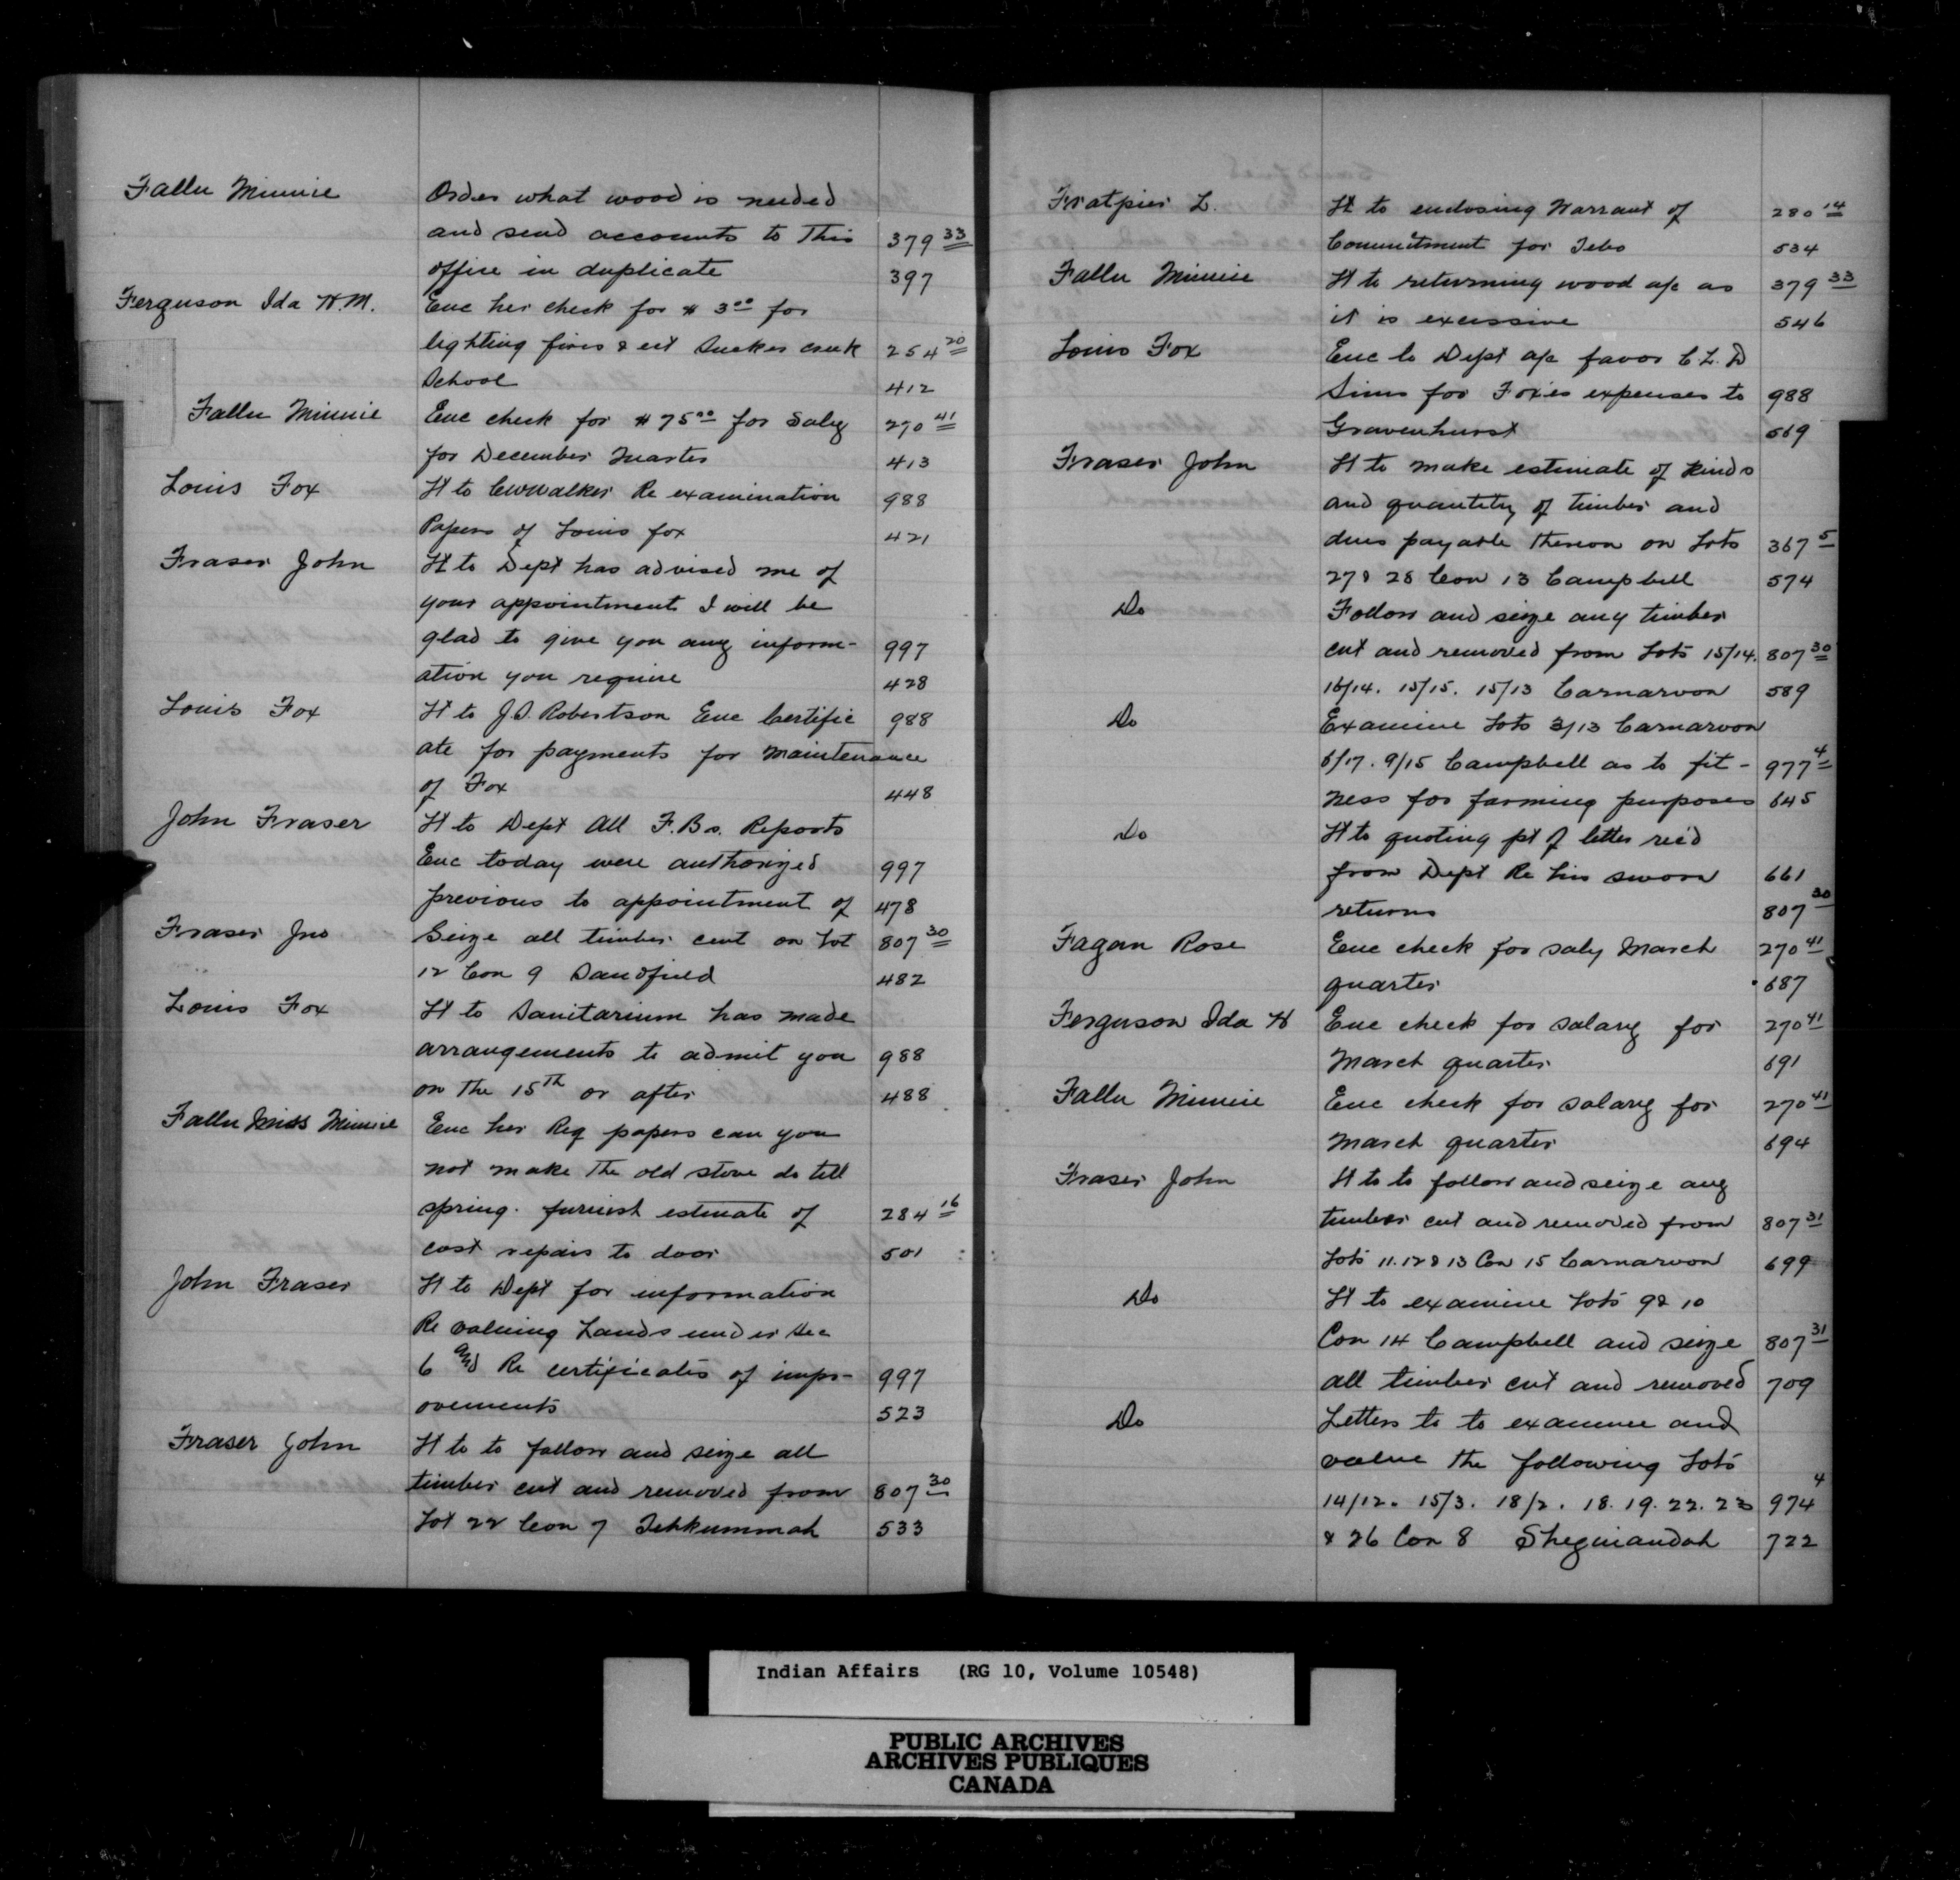 Fallu Minnie
Order what wood is needed
and send accounts to This 379 33
office in duplicate 397
Ferguson Ida H.M. Enc her check for $ 3 00 for
lighting fires & ect Sucker creek 254 20
School 412
Fallu Minnie Enc check for $ 75 00 for Saly 270 41
for December Quarter 413
Louis Fox Lt to CWWalker Re examination 988
Papers of Louis fox 421
Fraser John Lt to Dept has advised me of
your appointment I will be
glad to give you any inform- 997
ation you require 428
Louis Fox Lt to J.D. Robertson Enc Certific 988
ate for payments for Maintenance
of Fox 448
John Fraser Lt to Dept All F.Bs. Reports
Enc today were authorized 997
previous to appointment of 478
Fraser Jno Seize all timber cut on Lot 807 30
12 Con 9 Sandfield 482
Louis Fox Lt to Sanitarium has made
arrangements to admit you 988
on the 15th or after 488
Fallu Miss Minnie Enc her Req papers can you
not make the old stove do till
spring. furnish estimate of 284 16
cost repairs to door 501
John Fraser Lt to Dept for information
Re valuing Lands under Sec
6 and Re certificates of impr- 997
ovements 523
Fraser John Lt to to follow and seize all
timber cut and removed from 807 30
Lot 22 Con 7 Tehkummah 533
Fratpier L. Lt to enclosing Warrant of 280 14
Committment for Tebo 534
Fallu Minnie Lt to returning wood a/c as 379 33
it is excessive 546
Louis Fox Enc to Dept a/c favor C.L.D
Sims for Foxes expenses to 988
Gravenhurst 569
Fraser John Lt to make estimate of kinds
and quantity of timber and
dues payable thereon on Lots 367 5
27 & 28 Con 13 Campbell 574
Do Follow and seize any timber
cut and removed from Lots 15/14. 807 30
16/14. 15/15. 15/13 Carnarvon 589
Do Examine Lots 3/13 Carnarvon
6/17. 9/15 Campbell as to fit- 977 4
ness for farming purposes 645
Do Lt to quoting pt of letter rec'd
from Dept Re his sworn 661
returns 807 30
Fagan Rose Enc check for saly March 270 41
quarter 687
Ferguson Ida H Enc check for salary for 270 41
March quarter 691
Fallu Minnie Enc check for salary for 270 41
March quarter 694
Fraser John Lt to to follow and seize any
timber cut and removed from 807 31
Lots 11. 12 & 13 Con 15 Carnarvon 699
Do Lt to examine Lots 9 & 10
Con 14 Campbell and seize 807 31
all timber cut and removed 709
Do Letters to to examine and
value the following Lots
14/12. 15/3. 18/2. 18. 19. 22. 23 974 4
& 26 Con 8 Sheguiandah 722
Indian Affairs (RG 10, Volume 10548)
PUBLIC ARCHIVES
ARCHIVES PUBLIQUES
CANADA